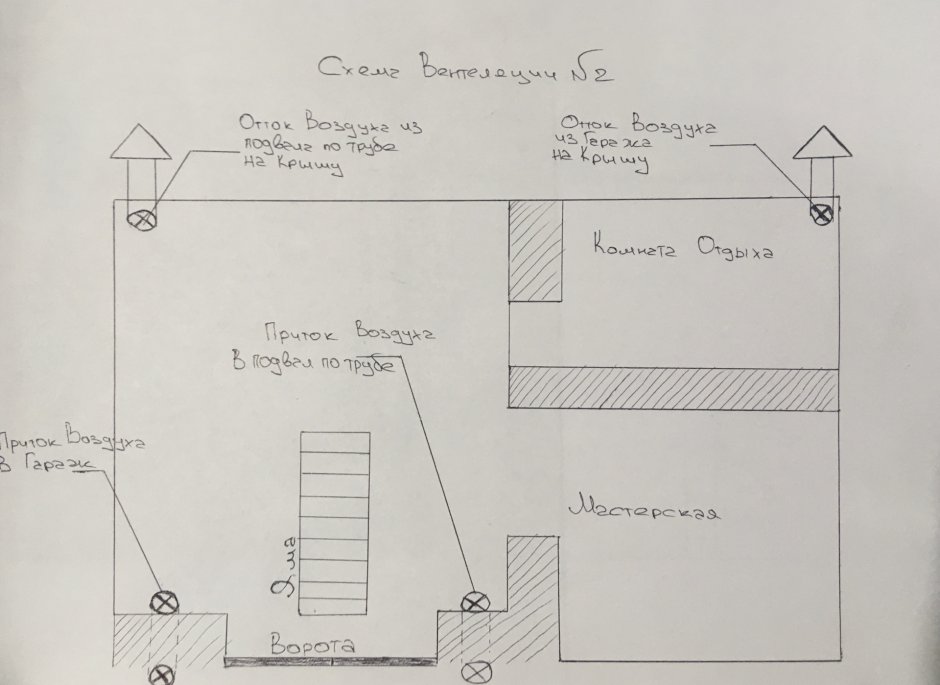 Схема Вентеляции №2
Отток Воздуха из
подвала по трубе
на Крышу
Отток Воздуха
из Гаража
на Крышу
Комната Отдыха
Приток Воздуха
В подвал по трубе
Приток Воздуха
в Гараж
Мастерская
Яма
Ворота